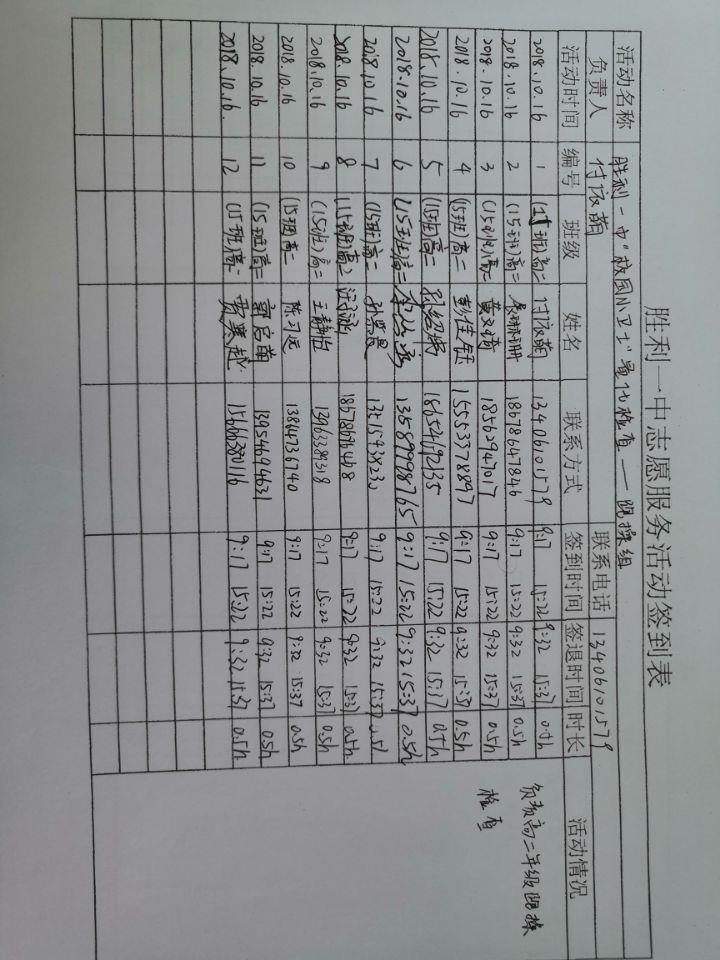 胜利一中志愿服务活动签到表
活动名称 胜利一中"校园小卫士"量化检查——眼操组
负责人 付依萌 联系电话 13406101579
活动时间 编号 班级 姓名 联系方式 签到时间 签退时间 时长 活动情况
2018.10.16 1 (15班)高二 付依萌 13406101579 9:17 15:22 9:32 15:37 0.5h 负责高二年级眼操
2018.10.16 2 (15班)高二 18678647846 9:17 15:22 9:32 15:37 0.5h 检查
2018.10.16 3 (15班)高二 黄双奇 18562947017 9:17 15:22 9:32 15:37 0.5h
2018.10.16 4 (15班)高二 彭佳钰 15553378897 9:17 15:22 9:32 15:37 0.5h
2018.10.16 5 (15班)高二 18654692135 9:17 15:22 9:32 15:37 0.5h
2018.10.16 6 (15班)高二 13589998765 9:17 15:22 9:32 15:37 0.5h
2018.10.16 7 (15班)高二 9:17 15:22 9:32 15:37 0.5h
2018.10.16 8 (15班)高二 9:17 15:22 9:32 15:37 0.5h
2018.10.16 9 (15班)高二 王静怡 13963389318 9:17 15:22 9:32 15:37 0.5h
2018.10.16 10 (15班)高二 陈习远 13864736740 9:17 15:22 9:32 15:37 0.5h
2018.10.16 11 (15班)高二 郭启萌 13954694631 9:17 15:22 9:32 15:37 0.5h
2018.10.16 12 (15班)高二 贾寒越 15666380116 9:17 15:22 9:32 15:37 0.5h